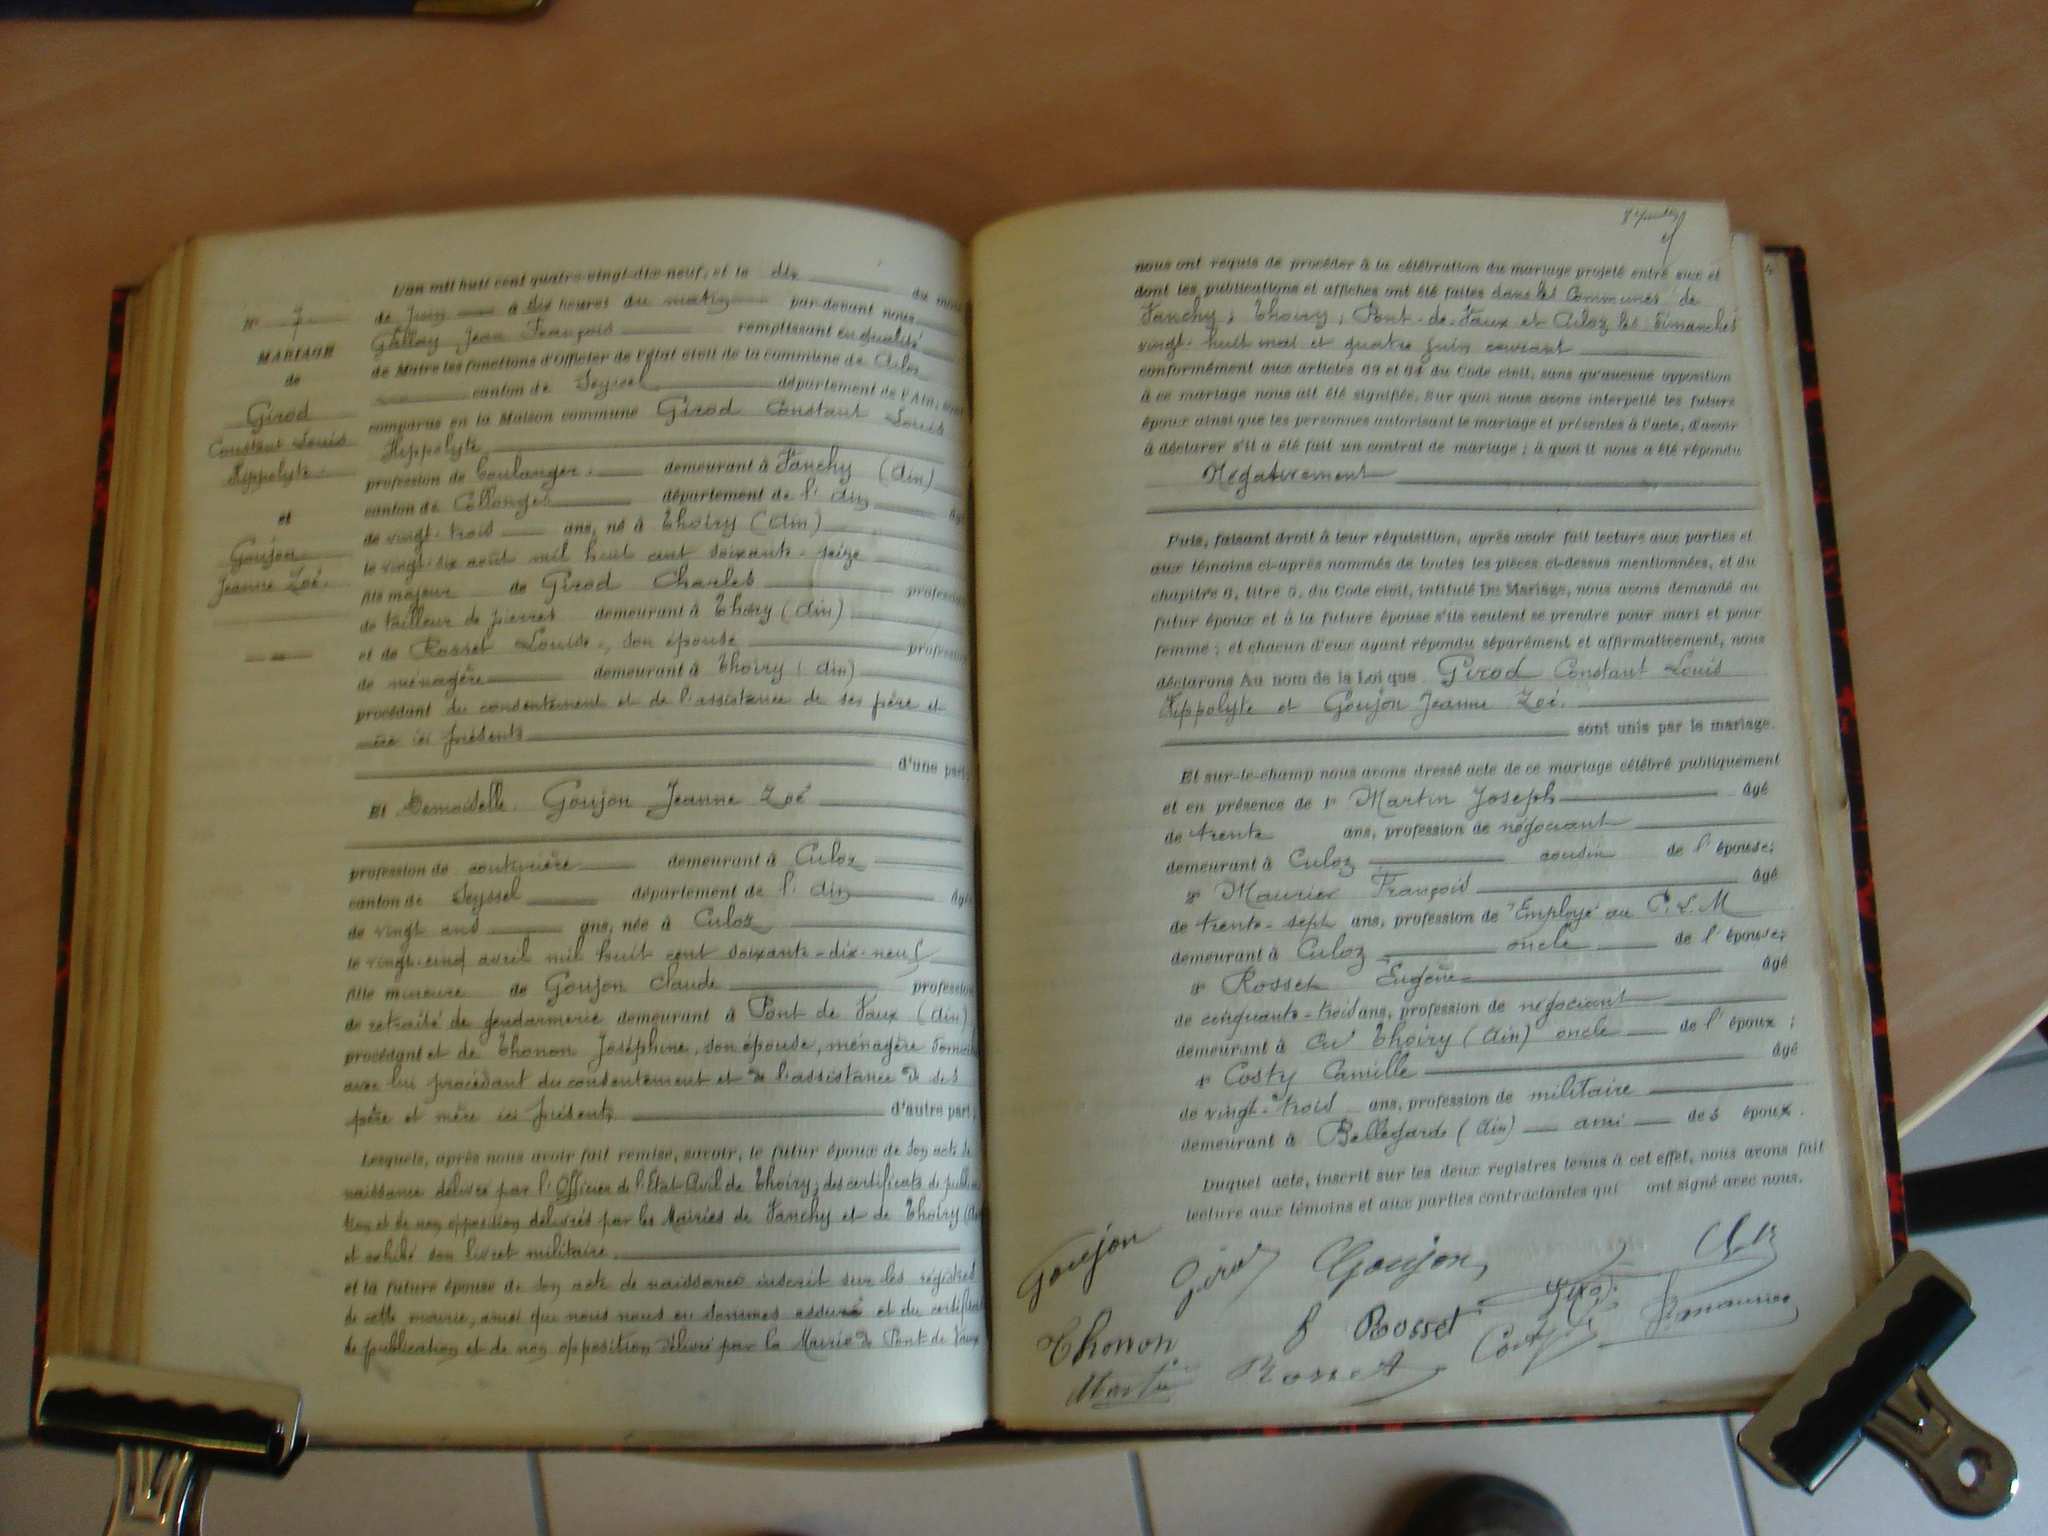 N° 7
MARIAGE
de
Girod
Constant Louis
Hippolyte
et
Goujon
Jeanne Zoé.
L'an mil huit cent quatre-vingt-dix-neuf, et le dix du mois
de Juin à dix heures du matin par-devant nous
Gallay Jean François remplissant en qualité
de Maire les fonctions d'Officier de l'état civil de la commune de Culoz
canton de Seyssel département de l'Ain, sont
comparus en la Maison commune Girod Constant Louis
Hippolyte
profession de boulanger demeurant à Fanchy (Ain)
canton de Collonges département de l'Ain âgé
de vingt-trois ans, né à Thoiry (Ain)
le vingt-six août mil huit cent soixante-seize
fils majeur de Girod Charles profession
de tailleur de pierres demeurant à Thoiry (Ain)
et de Rosset Louise, son épouse profession
de ménagère demeurant à Thoiry (Ain)
procédant du consentement et de l'assistance de ses père et
mère ici présents
d'une part.
Et Demoiselle Goujon Jeanne Zoé
profession de couturière demeurant à Culoz
canton de Seyssel département de l'Ain âgée
de vingt ans ans, née à Culoz
le vingt-cinq avril mil huit cent soixante-dix-neuf
fille mineure de Goujon Claude profession
de retraité de gendarmerie demeurant à Pont de Vaux (Ain)
procédant et de Thonon Joséphine, son épouse, ménagère
avec lui procédant du consentement et de l'assistance de ses
père et mère ici présents d'autre part.
Lesquels, après nous avoir fait remise, savoir, le futur époux de son acte de
naissance délivré par l'Officier de l'Etat-Civil de Thoiry, des certificats de publica
tion et de non opposition délivrés par les Mairies de Fanchy et de Thoiry (Ain)
et exhibé son livret militaire
et la future épouse de son acte de naissance inscrit sur les registres
de cette mairie, ainsi que nous nous en sommes assuré et du certificat
de publication et de non opposition délivré par la Mairie de Pont de Vaux
nous ont requis de procéder à la célébration du mariage projeté entre eux et
dont les publications et affiches ont été faites dans les Communes de
Fanchy, Thoiry, Pont-de-Vaux et Culoz les Dimanches
vingt-huit mai et quatre Juin courant
conformément aux articles 63 et 64 du Code civil, sans qu'aucune opposition
à ce mariage nous ait été signifiée. Sur quoi nous avons interpellé les futurs
époux ainsi que les personnes autorisant le mariage et présentes à l'acte, d'avoir
à déclarer s'il a été fait un contrat de mariage ; à quoi il nous a été répondu
Négativement
Puis, faisant droit à leur réquisition, après avoir fait lecture aux parties et
aux témoins ci-après nommés de toutes les pièces ci-dessus mentionnées, et du
chapitre 6, titre 5, du Code civil, intitulé Du Mariage, nous avons demandé au
futur époux et à la future épouse s'ils veulent se prendre pour mari et pour
femme ; et chacun d'eux ayant répondu séparément et affirmativement, nous
déclarons Au nom de la Loi que Girod Constant Louis
Hippolyte et Goujon Jeanne Zoé.
sont unis par le mariage.
Et sur-le-champ nous avons dressé acte de ce mariage célébré publiquement
et en présence de 1° Martin Joseph âgé
de trente ans, profession de négociant
demeurant à Culoz cousin de l'épouse;
2° Maurier François âgé
de trente-sept ans, profession de Employé au P.L.M
demeurant à Culoz oncle de l'épouse;
3° Rosset Eugène âgé
de cinquante-trois ans, profession de négociant
demeurant à Thoiry (Ain) oncle de l'époux ;
4° Costy Camille âgé
de vingt-trois ans, profession de militaire
demeurant à Bellegarde (Ain) ami des époux.
Duquel acte, inscrit sur les deux registres tenus à cet effet, nous avons fait
lecture aux témoins et aux parties contractantes qui ont signé avec nous.
Goujon Girod Goujon
Thonon Rosset maurier
Martin Rosset Costy